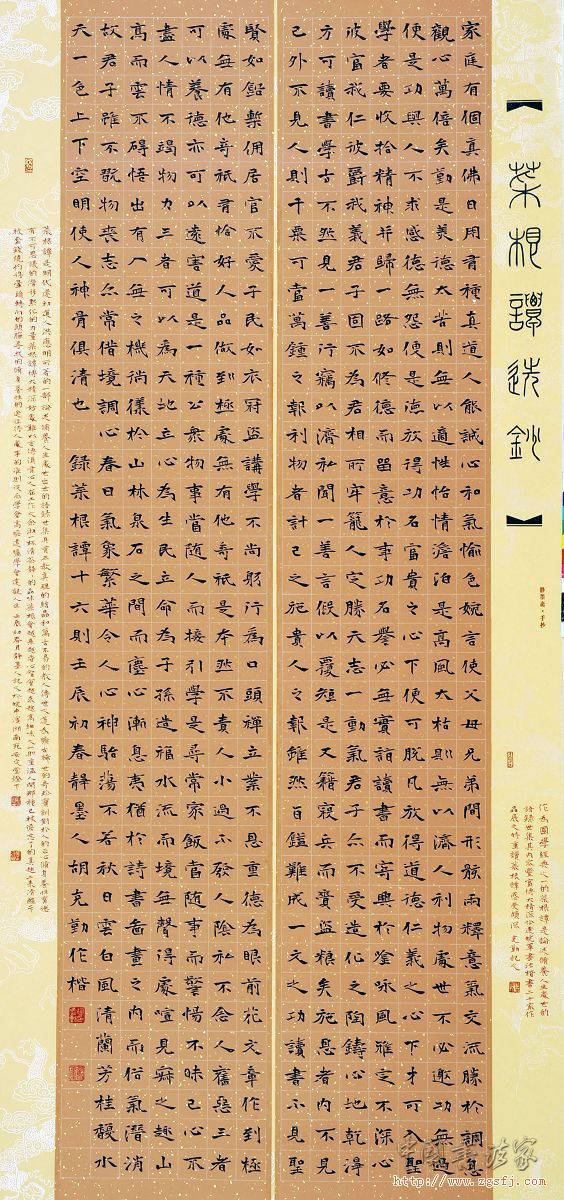 菜根譚选鈔
静墨斋·手抄
作為國學經典之一的菜根譚是論述修養人生處世的
語錄世集其內容豐富博大精深恰逢皖軍書法楷書二十家作
品展之時重讀菜根譚感受頗深 克勤記之
家庭有個真佛日用有種真道人能誠心和氣愉色婉言使父母兄弟間形骸兩釋意氣交流勝於調息
觀心萬倍矣勤是美德太苦則無以適性怡情澹泊是高風太枯則無以濟人利物處世不必邀功無過
便是功與人不求感德無怨便是德放得功名富貴之心下便可脫凡放得道德仁義之心下才可入聖
學者要收拾精神并歸一路如修德而留意於事功名譽必無實詣讀書而寄興於吟咏風雅定不深心
彼富我仁彼爵我義君子固不為君相所牢籠人定勝天志一動氣君子亦不受造化之陶鑄心地乾淨
方可讀書學古不然見一善行竊以濟私聞一善言假以覆短是又籍寇兵而賫盜糧矣施恩者內不見
己外不見人則斗粟可當萬鍾之報利物者計己之施責人之報雖然百鎰難成一文之功讀書不見聖
賢如鉛槧傭居官不愛子民如衣冠盜講學不尚躬行為口頭禪立業不思種德為眼前花文章作到極
處無有他奇祇有恰好人品做到極處無有他奇祇是本然不責人小過不發人陰私不念人舊惡三者
可以養德亦可以遠害道是一種公眾物事當隨人而接引學是尋常家飯當隨事而警惕不昧己心不
盡人情不竭物力三者可以為天地立心為生民立命為子孫造福水流而境無聲得處喧見寂之趣山
高而雲不碍悟出有入無之機徜徉於山林泉石之間而塵心漸息夷猶於詩書圖畫之內而俗氣潛消
故君子雖不翫物喪志亦常借境調心春日氣象繁華令人心神駘蕩不若秋日雲白風清蘭芳桂馥水
天一色上下空明使人神骨俱清也 錄菜根譚十六則壬辰初春靜墨人胡克勤作楷
菜根譚是明代還初道人洪應明所著的一部論述修養人生處世出世的語錄世集
中国书法家
http://www.zgsfj.com